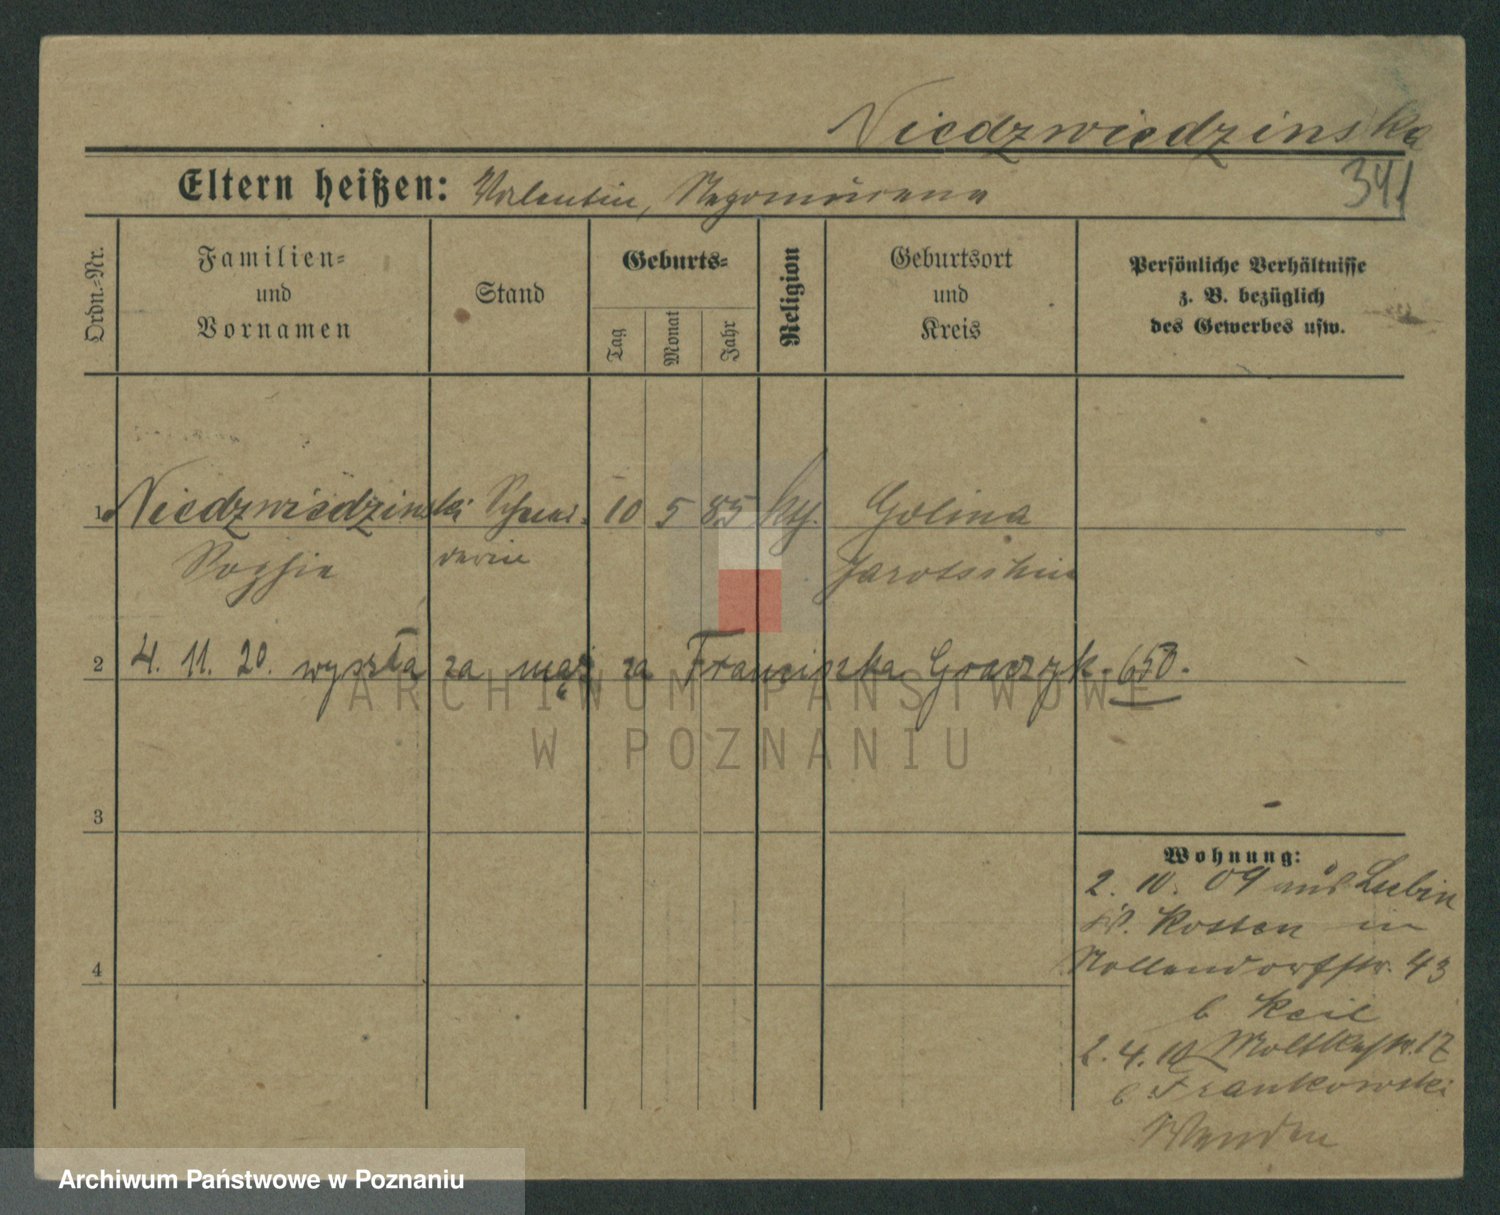 Niedzwiedzinska
341
Eltern heißen: Valentin,
Ordn.-Nr.
Familien-
und
Vornamen
Stand
Geburts-
Tag
Monat
Jahr
Religion
Geburtsort
und
Kreis
Persönliche Verhältnisse
z. B. bezüglich
des Gewerbes usw.
1 Niedzwiedzinski Schnei- 10 5 85 kth. Golina
Sophie derin Jarotschin
2 4. 11. 20. wyszła za mąż za Franciszka Graczyk - 650 -
ARCHIWUM PAŃSTWOWE
W POZNANIU
3
4
Wohnung:
2. 10. 09 aus Lubin
Kosten in
Nollendorfstr. 43
b Keil
2. 4. 10 Moltkestr. 17
b Frankowski
Archiwum Państwowe w Poznaniu